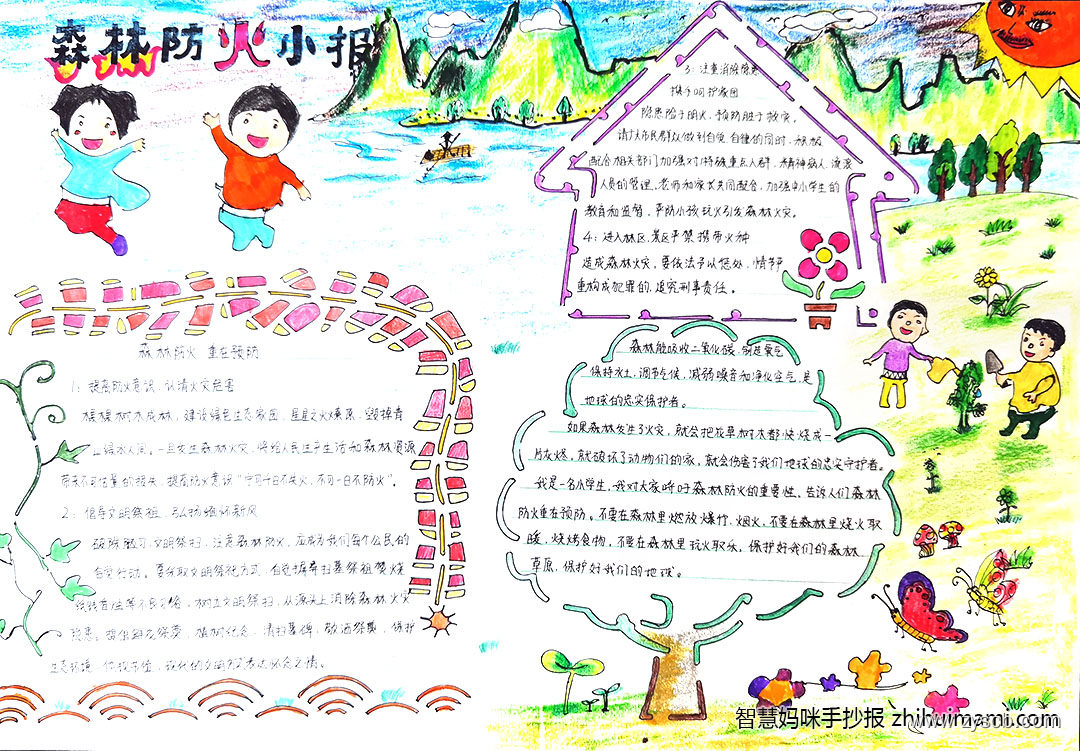 森林防火小报
森林防火 重在预防
1：提高防火意识，认清火灾危害
棵棵树木成林，建设绿色生态家园，星星之火燎原，毁掉青
山绿水人间。一旦发生森林火灾，将给人民生产生活和森林资源
带来不可估量的损失，提高防火意识"宁可千日不失火，不可一日不防火"。
2：倡导文明祭祖，弘扬缅怀新风
破除陋习，文明祭扫，注意森林防火，应成为我们每个公民的
自觉行动。要采取文明祭祀方式，自觉摒弃扫墓祭祖焚烧
纸钱香烛等不良习俗，树立文明祭扫，从源头上消除森林火灾
隐患。提倡鲜花祭奠，植树纪念，清扫墓碑，敬酒祭奠，保护
生态环境
现代的文明方式表达怀念之情。
3：注重消除隐患
携手呵护家园
隐患险于明火，预防胜于救灾。
请广大市民群众做到自觉自律的同时，积极
配合相关部门加强对特殊重点人群、精神病人、流浪
人员的管理。老师和家长共同配合，加强中小学生的
教育和监督，严防小孩玩火引发森林火灾。
4：进入林区、景区严禁携带火种
造成森林火灾，要依法予以惩处，情节严
重构成犯罪的，追究刑事责任。
森林能吸收二氧化碳，制造氧气
保持水土，调节气候，减弱噪音和净化空气，是
地球的忠实保护者。
如果森林发生了火灾，就会把花草树木都快烧成一
片灰烬，就破坏了动物们的家，就会伤害了我们地球的忠实守护者。
我是一名小学生，我对大家呼吁森林防火的重要性。告诉人们森林
防火重在预防。不要在森林里燃放爆竹、烟火，不要在森林里烧火取
暖，烧烤食物，不要在森林里玩火取乐。保护好我们的森林
草原，保护好我们的地球。
智慧妈咪手抄报 zhihuimami.com